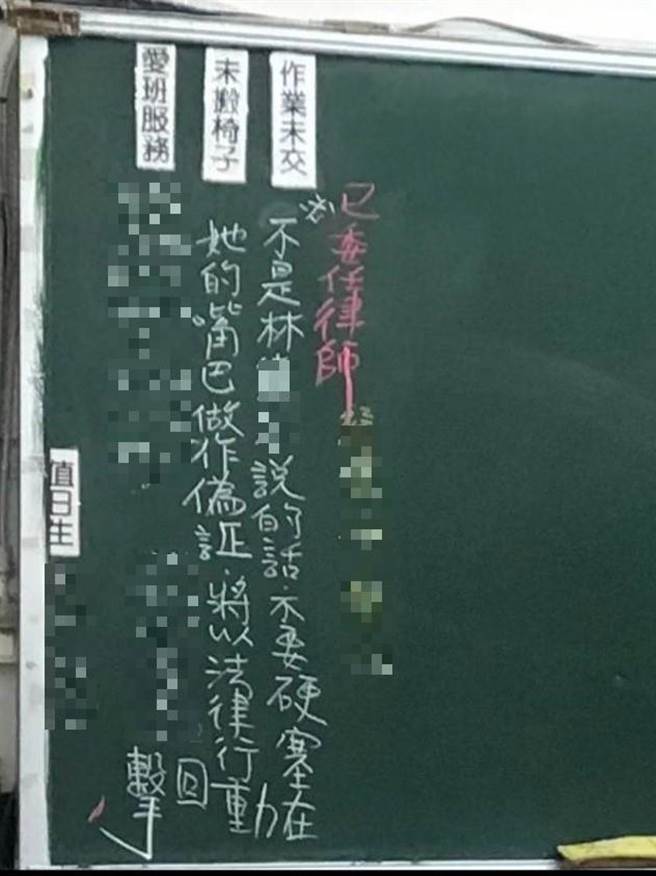 已委任律師
作業未交
※不是林
說的話.不要硬塞在
未搬椅子
她的嘴巴做作偽証.將以法律行動
回
擊
愛班服務
值日生